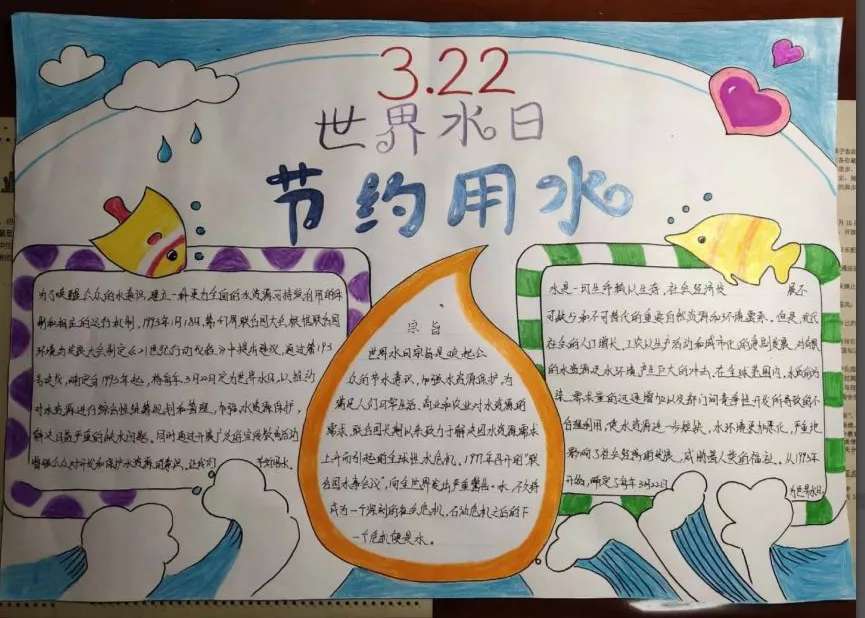 3.22
世界水日
节约用水
为了唤醒公众的水意识,建立一种更为全面的水资源可持续利用的体
制和相应的运行机制,1993年1月18日,第47届联合国大会根据联合国
环境与发展大会制定《21世纪行动议程》中提出建议,通过第193
号决议,确定自1993年起,将每年3月22日定为世界水日,以推动
对水资源进行综合性统筹规划和管理,加强水资源保护,
解决日益严重的缺水问题。同时通过开展广泛的宣传教育活动
增强公众对开发和保护水资源的意识。让我们 节约用水。
宗旨
世界水日宗旨是唤起公
众的节水意识,加强水资源保护。为
满足人们日常生活、商业和农业对水资源的
需求,联合国长期以来致力于解决因水资源需求
上升而引起的全球性水危机。1977年召开的"联
合国水事会议",向全世界发出严重警告:水,不久将
成为一个深刻的社会危机,石油危机之后的下
一个危机便是水。
水是一切生命赖以生存,社会经济发 展不
可缺少和不可替代的重要自然资源和环境要素。但是,现代
社会的人口增长、工农业生产活动和城市化的急剧发展,对有限
的水资源及水环境产生巨大的冲击。在全球范围内,水质的污
染、需水量的迅速增加以及部门间竞争性开发所导致的不
合理利用,使水资源进一步短缺,水环境更加恶化,严重地
影响了社会经济的发展,威胁着人类的福祉。从1993年
开始,确定了每年3月22日 为世界水日